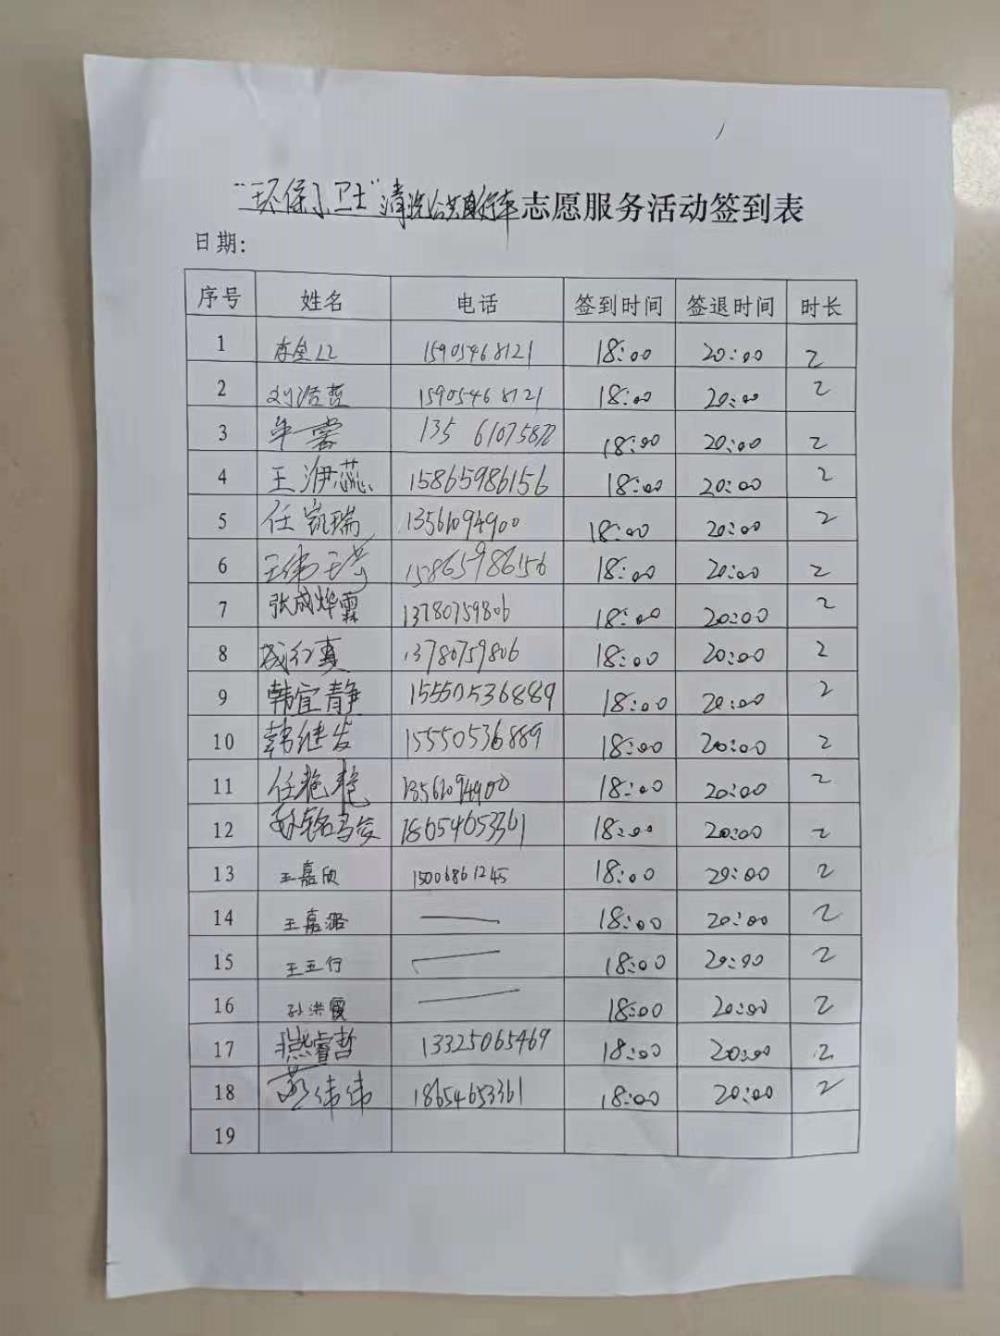 "环保小卫士"清洗公共自行车志愿服务活动签到表
日期:
序号 姓名 电话 签到时间 签退时间 时长
1 15905468121 18:00 20:00 2
2 刘浩哲 15905468121 18:00 20:00 2
3 牟霞 135 61075872 18:00 20:00 2
4 王洢蕊 15865986156 18:00 20:00 2
5 任凯瑞 13561094900 18:00 20:00 2
6 15865986156 18:00 20:00 2
7 张成烨霖 13780759806 18:00 20:00 2
8 成红真 13780759806 18:00 20:00 2
9 韩宜静 15550536889 18:00 20:00 2
10 韩继发 15550536889 18:00 20:00 2
11 任艳艳 13561094900 18:00 20:00 2
12 18654653361 18:00 20:00 2
13 王嘉欣 15006861245 18:00 20:00 2
14 王嘉潞 —— 18:00 20:00 2
15 王五行 —— 18:00 20:00 2
16 孙洪霞 —— 18:00 20:00 2
17 燕睿哲 13325065469 18:00 20:00 2
18 伟伟 18654653361 18:00 20:00 2
19